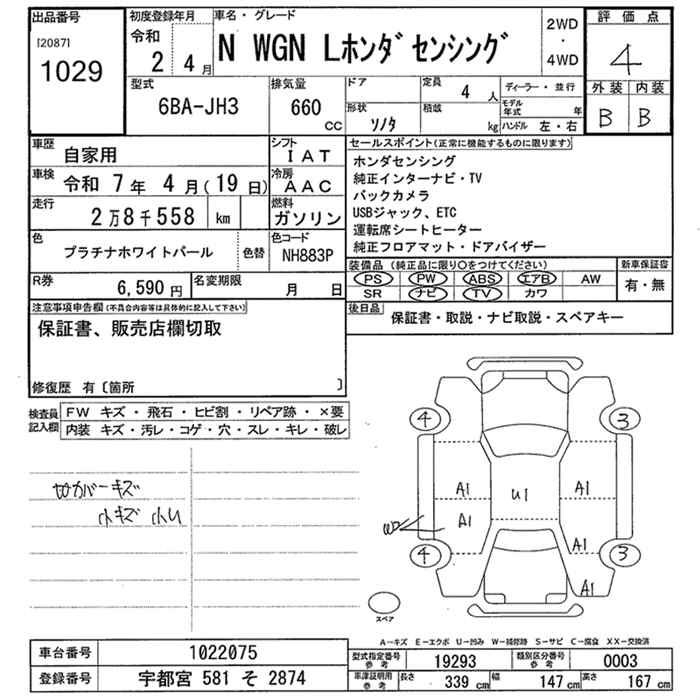 出品番号
[2087]
1029
初度登録年月
令和
2 4月
車名・グレード
N WGN Lホンダセンシング
2WD
・
4WD
評価点
4
外装 内装
B B
型式
6BA-JH3
排気量
660
CC
ドア
形状
ソノタ
定員
4 人
積載
kg
ディーラー・並行
モデル年式 年
ハンドル 左・右
車歴
自家用
シフト
IAT
車検
令和 7年 4月(19日)
冷房
AAC
走行
2万8千558 km
燃料
ガソリン
色
プラチナホワイトパール
色替
色コード
NH883P
R券
6,590円
名変期限
月 日
セールスポイント(正常に機能するものに限ります)
ホンダセンシング
純正インターナビ・TV
バックカメラ
USBジャック、ETC
運転席シートヒーター
純正フロアマット・ドアバイザー
装備品(純正品に限り〇をつけてください)
PS PW ABS エアB AW
SR ナビ TV カワ
新車保証書
有・無
後日品
保証書・取説・ナビ取説・スペアキー
注意事項申告欄(不具合内容等は具体的に記入して下さい)
保証書、販売店欄切取
修復歴 有〔箇所 〕
検査員記入欄
FW キズ・飛石・ヒビ割・リペア跡・×要
内装 キズ・汚レ・コゲ・穴・スレ・キレ・破レ
カバーキズ
小キズ 小U
4 3
A1 U1 A1
A1
W2
A1
4 3
A1
スペア
A-キズ E-エクボ U-凹み W-補修跡 S-サビ C-腐食 XX-交換済
車台番号
1022075
登録番号
宇都宮 581 そ 2874
型式指定番号
参考
19293
類別区分番号
参考
0003
車庫証明用
参考
長さ 339 cm 幅 147 cm 高さ 167 cm